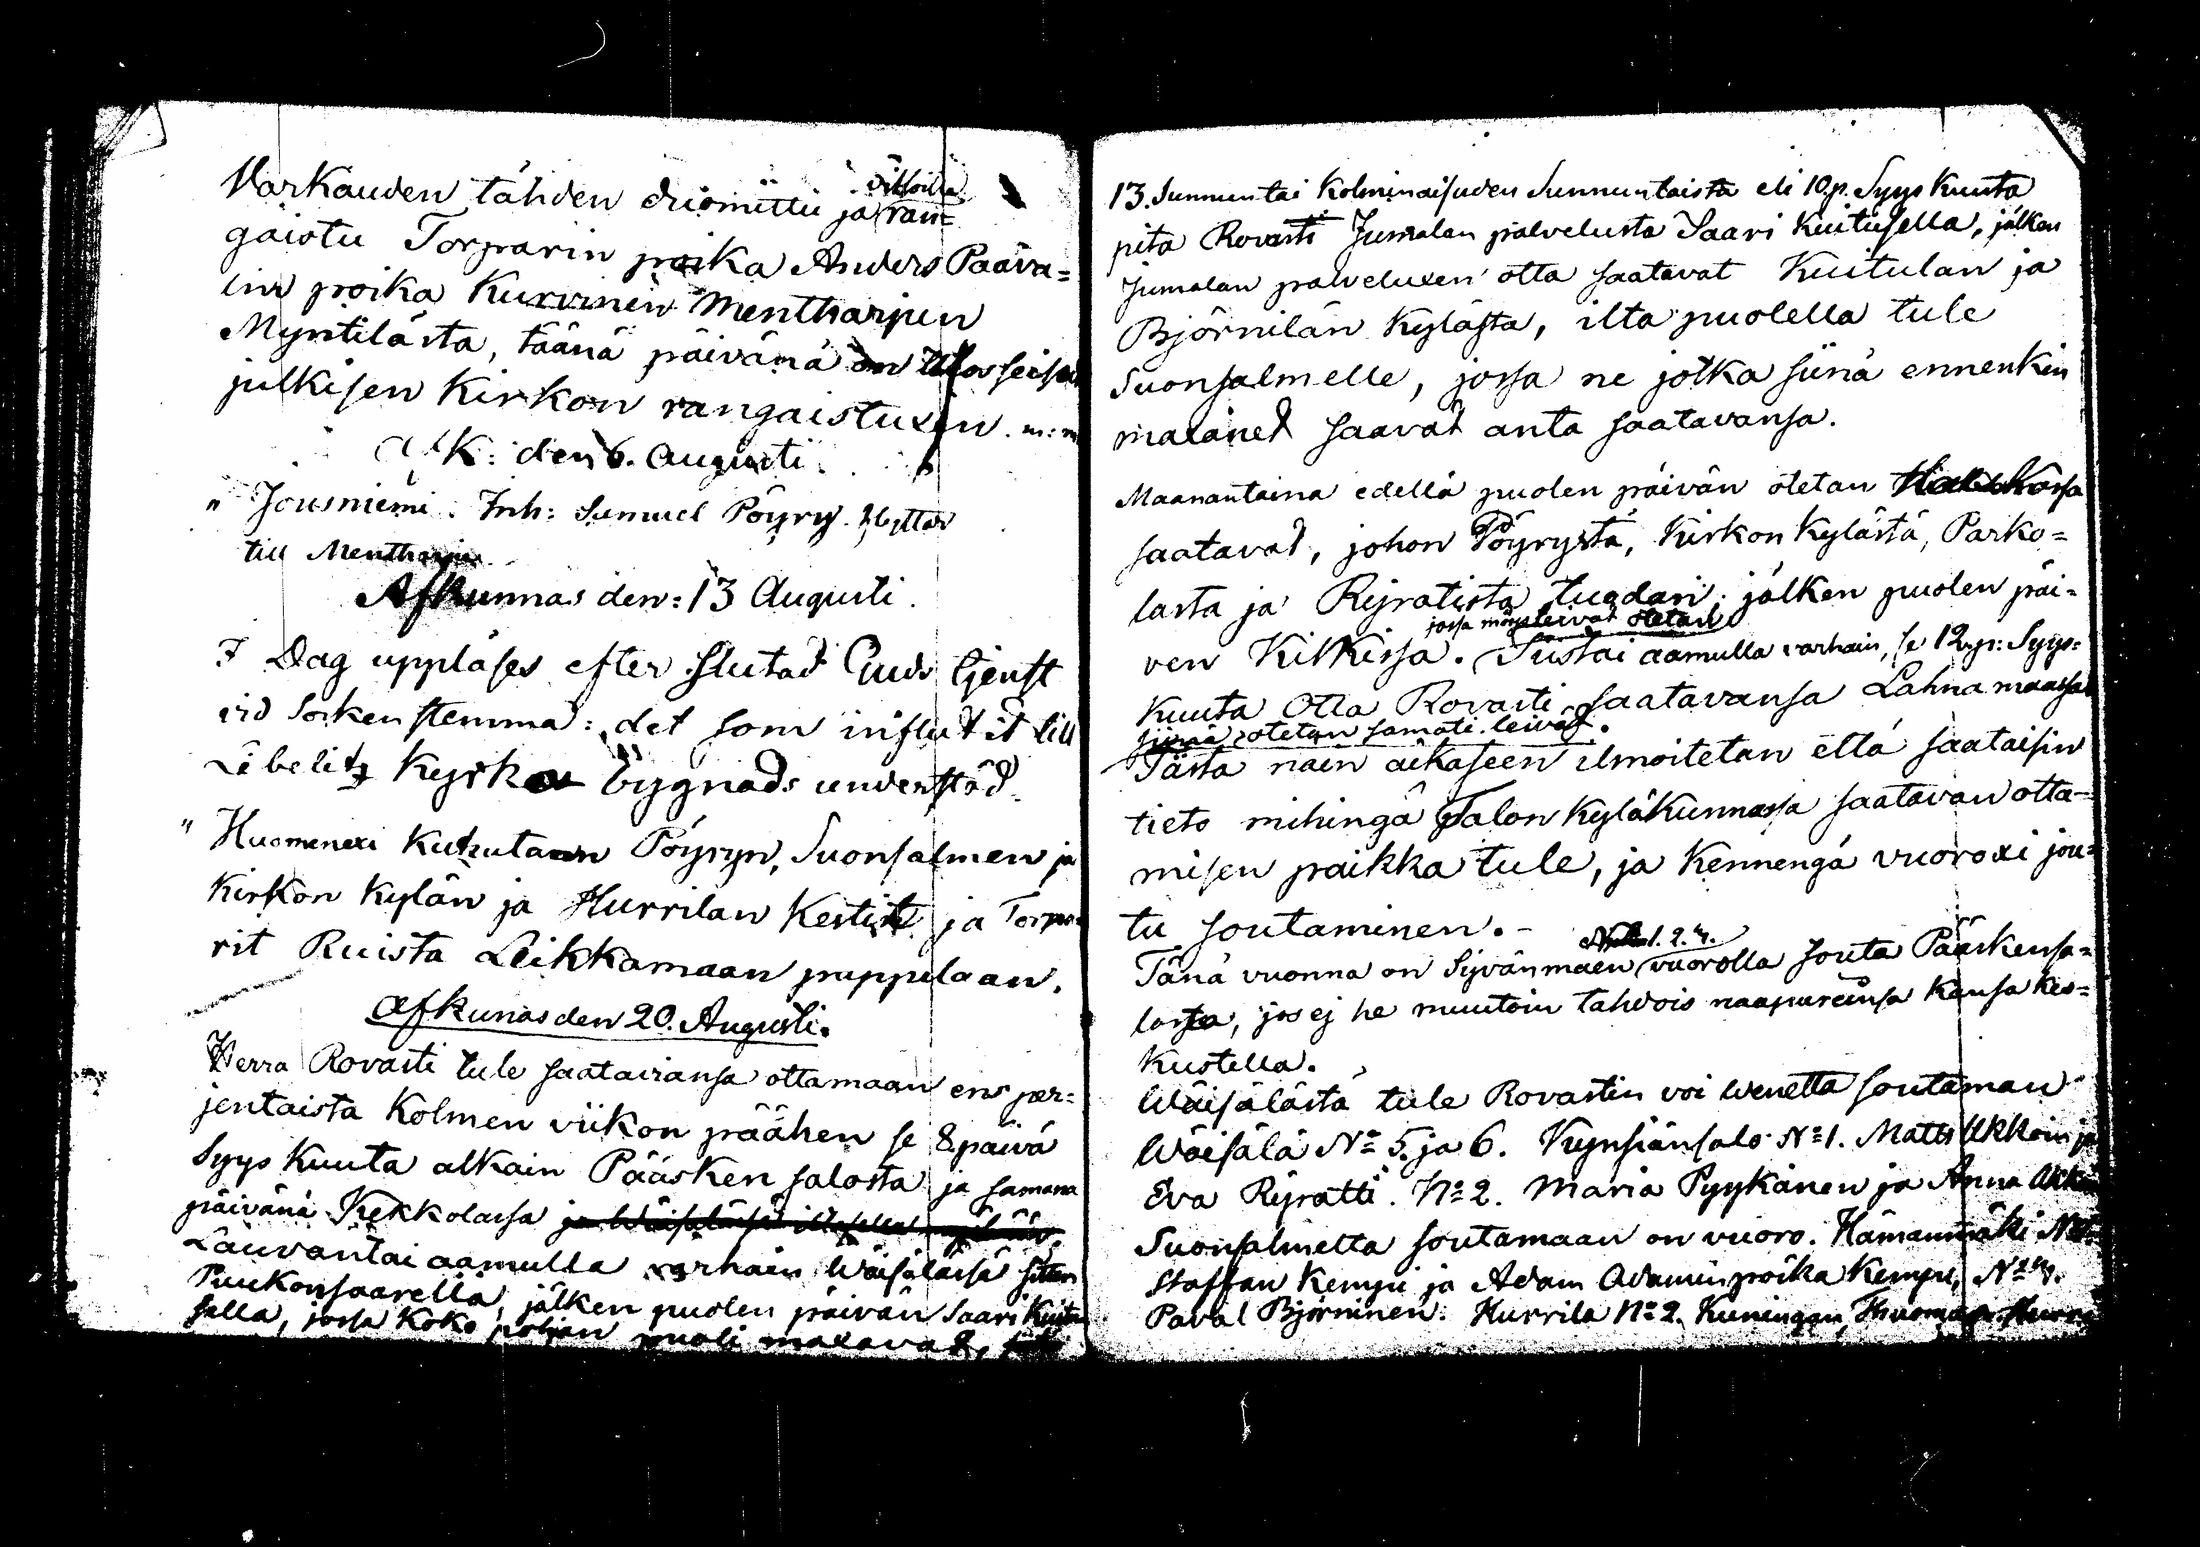 Varkauden tähden duomittu ja ran=
vitsoilla
gaistu Torparin poika Anders Paava=
lin poika Kurvinen Mentharjun
Myntilästa, täänä päivänä on Ulosseisova
julkisen Kirkon rangaistuxen. m:m
Afk: den 6. Augusti.
" Jousniemi. Inh: Samuel Pöyry. flyttar
till Mentharju
Afkunnas den: 13 Augusti.
I Dag uppläses efter slutad Guds tjenst
vid Sockenstemma: det som influtit till
Libelitz Kyrko bygnads understöd.
" Huomenexi Kutzutaan Pöyryn, Suonsalmen ja
Kirkon Kylän ja Hurrilan Kestit ja Torpa=
rit Ruista Leikkamaan pappilaan.
Afkunas den 20. Augusti.
Herra Rovasti tule saataviansa ottamaan ens per=
jentaista Kolmen viikon päähen se 8 päivä
Syys Kuuta alkain Pääsken salosta ja samana
päivänä Kekkolassa ja Wäisälässä
Lauvantai aamulla varhain Wäisälässä sitten
Puukonsaarella, jälken puolen päivän Saari Kuitu
salla, jossa Koko pohjan puoli maxavat,
13. Sunnuntai Kolminaisuden Sunnuntaista eli 10.p. Syys Kuuta
pita Rovasti Jumalan palvelusta Saari Kuitusella, jälken
Jumalan palveluxen otta saatavat Kuitulan ja
Björnilän Kylästa, ilta puolella tule
Suonsalmelle, jossa ne jotka siinä ennenkin
maxanet saavat anta saatavansa.
Maanantaina edellä puolen päivän otetan
saatavat, johon Pöyrystä, Kirkon Kylästä, Parko=
lasta ja Rijratista tuodan. jälken puolen päi=
ven Kitkissa. Tiistai aamulla varhain, se 12.p: Syys=
jossa myös leivät otetan
Kuuta Otta Rovasti saatavansa Lahna maassa
siinä otetan samati leivät.
Tästa näin aikaseen ilmoitetan että saataisin
tieto mihingä Talon Kyläkunnassa saatavan otta=
misen paikka tule, ja Kennengä vuoroxi jou=
tu soutaminen. -
Tänä vuonna on Syvänmaen vuorolla souta Pääskensa=
No 1. 2. 4.
losta, jos ej he muutoin tahdois naapureinsa Kansa Kes=
kustella.
Wäisälästä tule Rovastin voi wenetta soutaman
Wäisälä No 5. ja 6. Kynsiänsalo No 1. Matts Ukkoin ja
Eva Rijratti. No 2. Maria Pyykänen ja Anna
Suonsalmetta soutamaan on vuoro. Hämänmäki No
Staffan Kemppi ja Adam Adamin poika Kemppi, No 4.
Paval Björninen. Hurrila No 2. Kuningan,